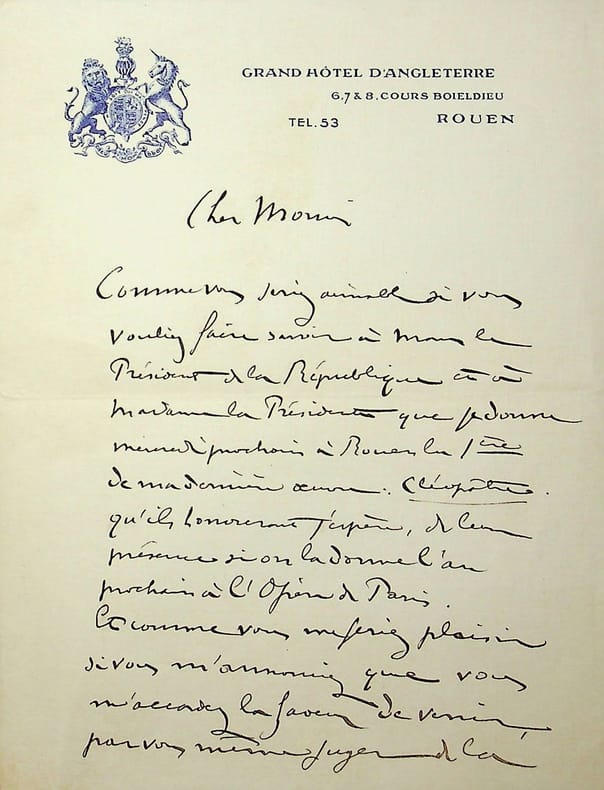 GRAND HÔTEL D'ANGLETERRE
6,7 & 8, COURS BOIELDIEU
TEL. 53
ROUEN
Cher
Comme vous seriez aimable si vous
vouliez faire savoir à Mons le
Président de la République et à
Madame la Présidente que je donne
mercredi prochain à Rouen la 1ère
de ma dernière œuvre : Cléopâtre.
qu'ils honoreront j'espère, de leur
présence si on la donne l'an
prochain à l'Opéra de Paris.
Et comme vous me feriez plaisir
si vous m'annonciez que vous
m'accordez la faveur de venir,
par vous même juger de la